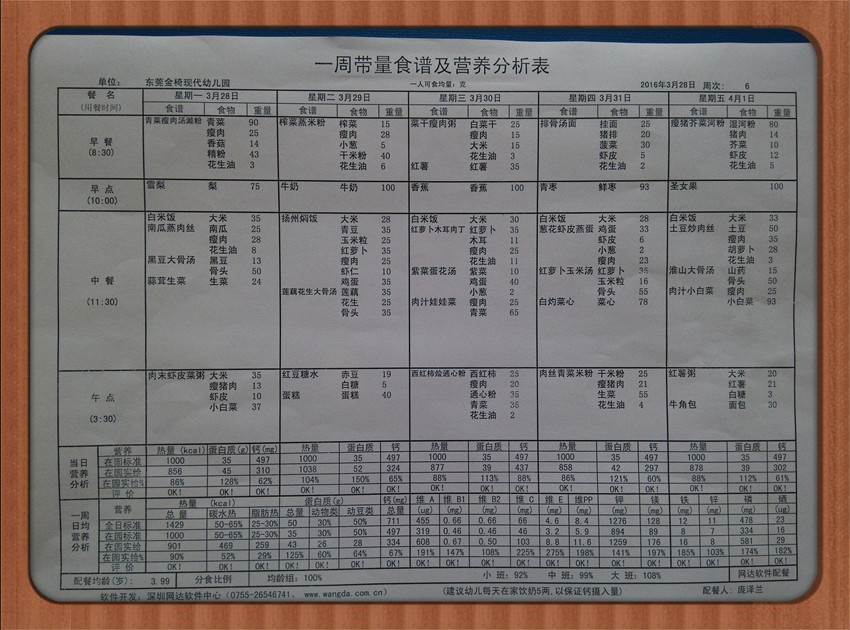 一周带量食谱及营养分析表
单位: 东莞金椅现代幼儿园 一人可食均量: 克 2016年3月28日 周次: 6
餐 名 星期一 3月28日 星期二 3月29日 星期三 3月30日 星期四 3月31日 星期五 4月1日
(用餐时间) 食谱 食物 重量 食谱 食物 重量 食谱 食物 重量 食谱 食物 重量 食谱 食物 重量
青菜瘦肉汤濑粉 青菜 90 榨菜蒸米粉 榨菜 15 菜干瘦肉粥 白菜干 25 排骨汤面 挂面 25 瘦猪芥菜河粉 湿河粉 80
早 餐 瘦肉 25 瘦肉 28 瘦肉 15 猪排 20 猪肉 14
(8:30) 香菇 14 小葱 5 大米 15 菠菜 30 芥菜 10
精粉 43 干米粉 40 花生油 3 虾皮 5 虾皮 12
花生油 3 花生油 6 红薯 红薯 35 花生油 2 花生油 5
早 点 雪梨 梨 75 牛奶 牛奶 100 香蕉 香蕉 100 青枣 鲜枣 93 圣女果 100
(10:00)
白米饭 大米 35 扬州焖饭 大米 28 白米饭 大米 30 白米饭 大米 28 白米饭 大米 33
南瓜蒸肉丝 南瓜 25 青豆 35 红萝卜木耳肉丁 红萝卜 35 葱花虾皮蒸蛋 鸡蛋 33 土豆炒肉丝 土豆 50
瘦肉 28 玉米粒 25 木耳 11 虾皮 6 瘦肉 35
花生油 8 红萝卜 35 瘦肉 25 小葱 2 胡萝卜 28
黑豆大骨汤 黑豆 13 瘦肉 25 花生油 11 瘦肉 23 花生油 3
中 餐 骨头 50 虾仁 10 紫菜蛋花汤 紫菜 10 红萝卜玉米汤 红萝卜 35 淮山大骨汤 山药 15
蒜茸生菜 生菜 24 鸡蛋 35 鸡蛋 40 玉米粒 16 骨头 50
(11:30) 莲藕花生大骨汤 莲藕 35 小葱 2 骨头 55 肉汁小白菜 瘦肉 25
花生 25 肉汁娃娃菜 瘦肉 25 白灼菜心 菜心 78 小白菜 93
骨头 35 青菜 65
午 点 肉末虾皮菜粥 大米 35 红豆糖水 赤豆 19 西红柿烩通心粉 西红柿 25 肉丝青菜米粉 干米粉 25 红薯粥 大米 20
瘦猪肉 13 白糖 5 瘦肉 20 瘦猪肉 21 红薯 21
(3:30) 虾皮 10 蛋糕 蛋糕 40 通心粉 35 生菜 55 白糖 3
小白菜 37 青菜 35 花生油 4 牛角包 面包 30
花生油 2
当日营养分析 营养 热量 (kcal) 蛋白质(g) 钙(mg) 热量 蛋白质 钙 热量 蛋白质 钙 热量 蛋白质 钙 热量 蛋白质 钙
在园标准 1000 35 497 1000 35 497 1000 35 497 1000 35 497 1000 35 497
在园实给 856 45 310 1038 52 324 877 39 437 858 42 297 878 39 302
在园实给% 86% 128% 62% 104% 150% 65% 88% 113% 88% 86% 121% 60% 88% 112% 61%
评 价 OK! OK! OK! OK! OK! OK! OK! OK! OK! OK! OK! OK! OK! OK! OK!
一周日均营养分析 营养 热量 (kcal) 蛋白质(g) 钙(mg) 维 A 维 B1 维 B2 维 C 维 E 维PP 钾 镁 铁 锌 磷 硒
总 量 碳水热 脂肪热 总量 动物类 动豆类 (ug) (mg) (mg) (mg) (mg) (mg) (mg) (mg) (mg) (mg) (mg) (ug)
全日标准 1429 50-65% 25-30% 50 30% 50% 711 455 0.66 0.66 66 4.6 8.4 1276 128 12 11 478 23
在园标准 1000 50-65% 25-30% 35 30% 50% 497 319 0.46 0.46 46 3.2 5.9 894 89 8 7 334 16
在园实给 901 469 259 43 26 28 334 608 0.67 0.50 103 8.8 11.6 1259 176 16 8 581 29
在园实给% 90% 52% 29% 125% 60% 64% 67% 191% 147% 108% 225% 275% 198% 141% 197% 185% 103% 174% 182%
评 价 OK! OK! OK! OK! OK! OK! OK! OK! OK! OK! OK! OK! OK! OK! OK! OK! OK! OK! OK!
配餐均龄(岁): 3.99 分食比例 均龄组: 100% 小 班: 92% 中 班: 99% 大 班: 108% 网达软件配餐
软件开发: 深圳网达软件中心 (0755-26546741, www.wangda.com.cn) (建议幼儿每天在家饮奶5两,以保证钙摄入量) 配餐人: 庞泽兰